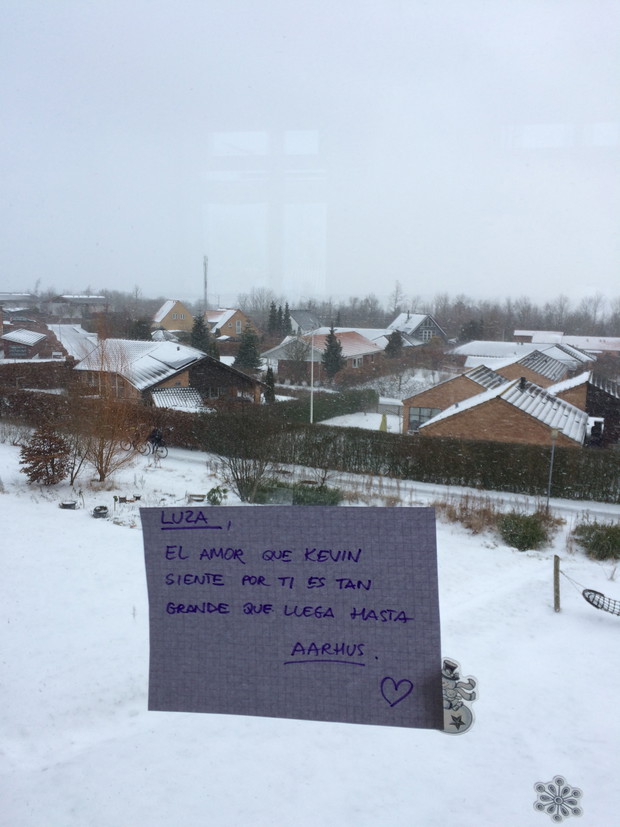 LUZA,
EL AMOR QUE KEVIN
SIENTE POR TI ES TAN
GRANDE QUE LLEGA HASTA
AARHUS.